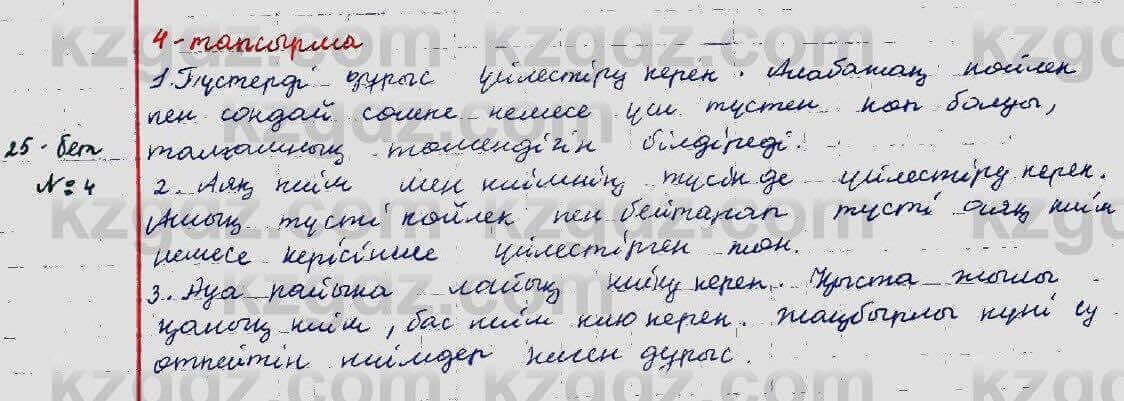 4-тапсырма
1. Түстерді дұрыс үйлестіру керек. Алабажақ көйлек
пен сондай сөмке немесе үш түстен көп болуы,
25-бет
талғамның төмендігін білдіреді.
№ 4
2. Аяқ киім мен киімнің түсін де үйлестіру керек.
Ашық түсті көйлек пен бейтарап түсті аяқ киім
немесе керісінше үйлестірген жөн.
3. Ауа райына лайық киіну керек. Қыста жылы
қалың киім, бас киім кию керек. Жаңбырлы күні су
өтпейтін киімдер киген дұрыс.
kzgdz.com